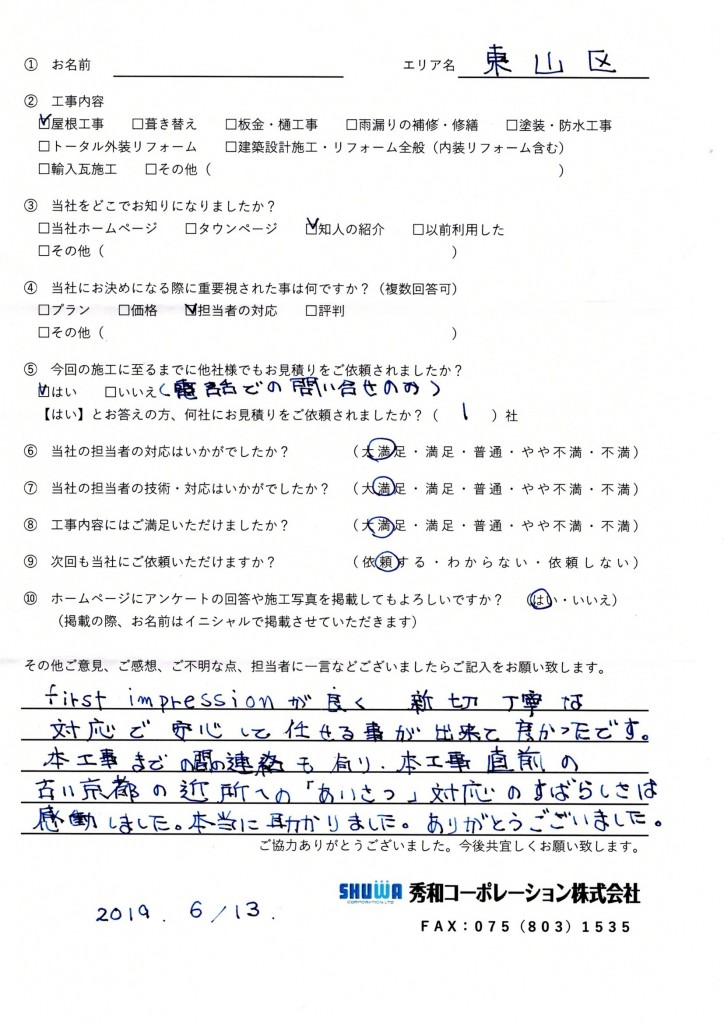 ① お名前 エリア名 東山区
② 工事内容
☑屋根工事 □葺き替え □板金・樋工事 □雨漏りの補修・修繕 □塗装・防水工事
□トータル外装リフォーム □建築設計施工・リフォーム全般（内装リフォーム含む）
□輸入瓦施工 □その他（ ）
③ 当社をどこでお知りになりましたか？
□当社ホームページ □タウンページ ☑知人の紹介 □以前利用した
□その他（ ）
④ 当社にお決めになる際に重要視された事は何ですか？（複数回答可）
□プラン □価格 ☑担当者の対応 □評判
□その他（ ）
⑤ 今回の施工に至るまでに他社様でもお見積りをご依頼されましたか？
☑はい □いいえ（電話での問い合せのみ）
【はい】とお答えの方、何社にお見積りをご依頼されましたか？（ 1 ）社
⑥ 当社の担当者の対応はいかがでしたか？ （大満足・満足・普通・やや不満・不満）
⑦ 当社の担当者の技術・対応はいかがでしたか？ （大満足・満足・普通・やや不満・不満）
⑧ 工事内容にはご満足いただけましたか？ （大満足・満足・普通・やや不満・不満）
⑨ 次回も当社にご依頼いただけますか？ （依頼する・わからない・依頼しない）
⑩ ホームページにアンケートの回答や施工写真を掲載してもよろしいですか？ （はい・いいえ）
（掲載の際、お名前はイニシャルで掲載させていただきます）
その他ご意見、ご感想、ご不明な点、担当者に一言などございましたらご記入をお願い致します。
first impressionが良く 新切丁寧な
対応で安心して任せる事が出来て良かったです。
本工事までの間の連絡も有り、本工事直前の
古い京都の近所への「あいさつ」対応のすばらしさは
感動しました。本当に助かりました。ありがとうございました。
ご協力ありがとうございました。今後共宜しくお願い致します。
SHUWA CORPORATION LTD 秀和コーポレーション株式会社
2019. 6/13.
FAX：075（803）1535